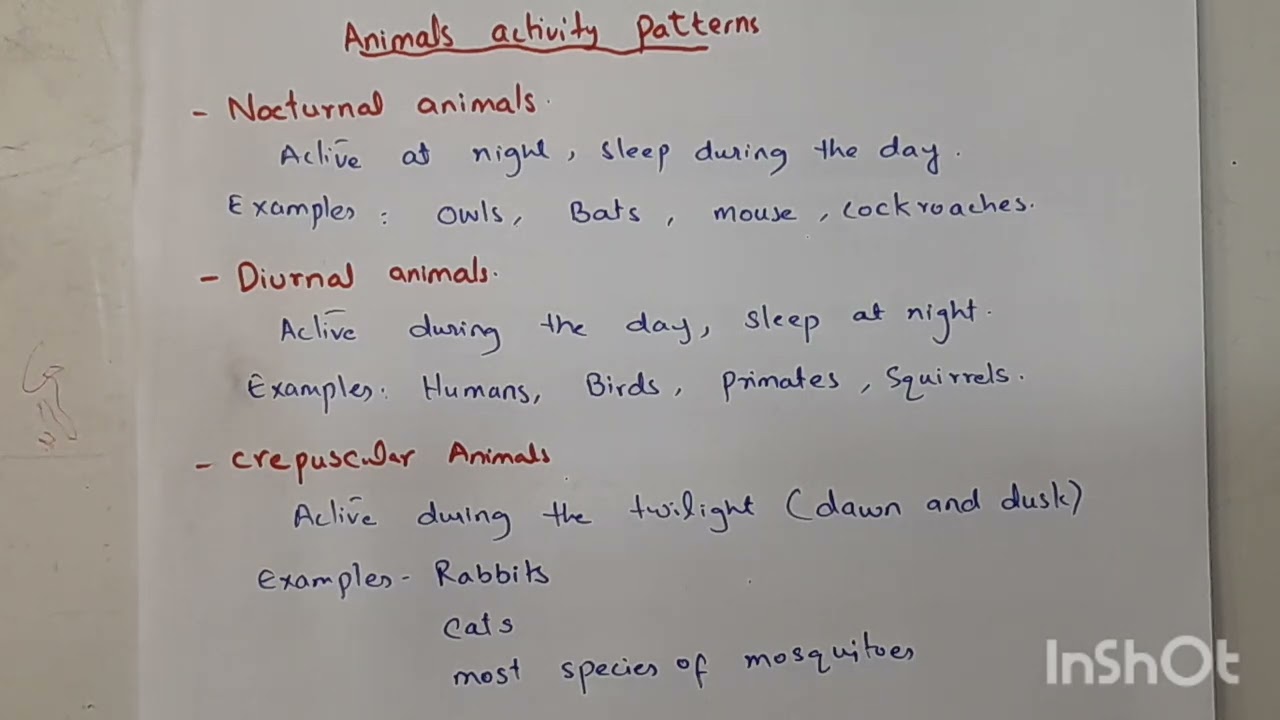 Animals activity patterns
- Nocturnal animals.
Active at night, sleep during the day.
Examples: Owls, Bats, mouse, cockroaches.
- Diurnal animals.
Active during the day, sleep at night.
Examples: Humans, Birds, primates, squirrels.
- crepuscular Animals
Active during the twilight (dawn and dusk)
Examples - Rabbits
cats
most species of mosquitoes
InShOt